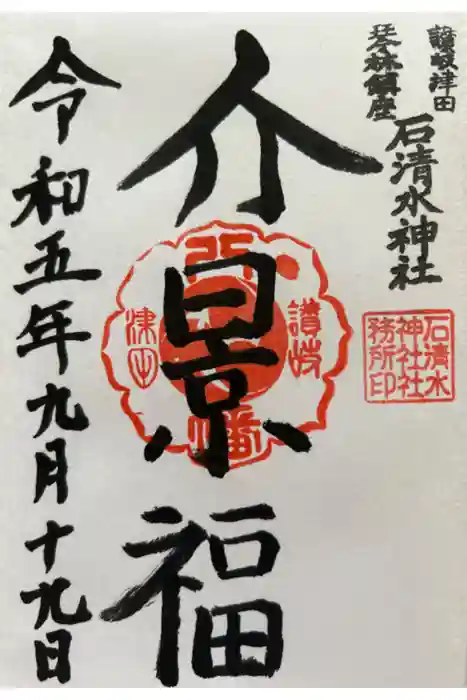 讃岐津田
琴林鎮座
石清水神社
介景福
令和五年九月十九日
讃岐
津田
八幡
石清水
神社社
務所印